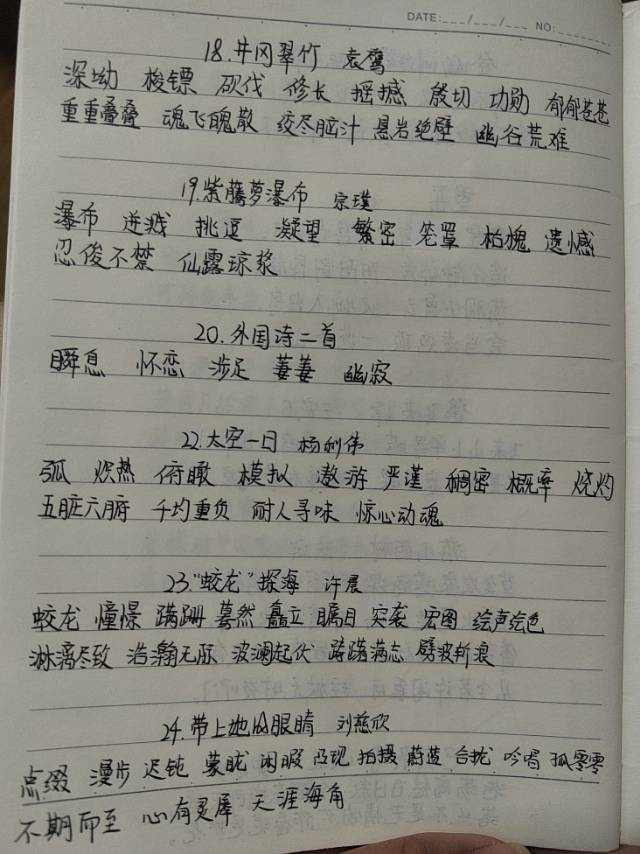 DATE:___/___/___ NO:________
18.井冈翠竹 袁鹰
深坳 梭镖 砍伐 修长 摇撼 殷切 功勋 郁郁苍苍
重重叠叠 魂飞魄散 绞尽脑汁 悬岩绝壁 幽谷荒难
19.紫藤萝瀑布 宗璞
瀑布 迸溅 挑逗 凝望 繁密 笼罩 枯槐 遗憾
忍俊不禁 仙露琼浆
20.外国诗二首
瞬息 怀恋 涉足 萋萋 幽寂
22.太空一日 杨利伟
弧 炽热 俯瞰 模拟 遨游 严谨 稠密 概率 烧灼
五脏六腑 千均重负 耐人寻味 惊心动魂
23."蛟龙"探海 许晨
蛟龙 憧憬 蹒跚 蓦然 矗立 瞩目 突袭 宏图 绘声绘色
淋漓尽致 浩瀚无际 波澜起伏 踌躇满志 劈波斩浪
24.带上她的眼睛 刘慈欣
点缀 漫步 迟钝 蒙眬 闲暇 凸现 拍摄 蔚蓝 合拢 吟唱 孤零零
不期而至 心有灵犀 天涯海角